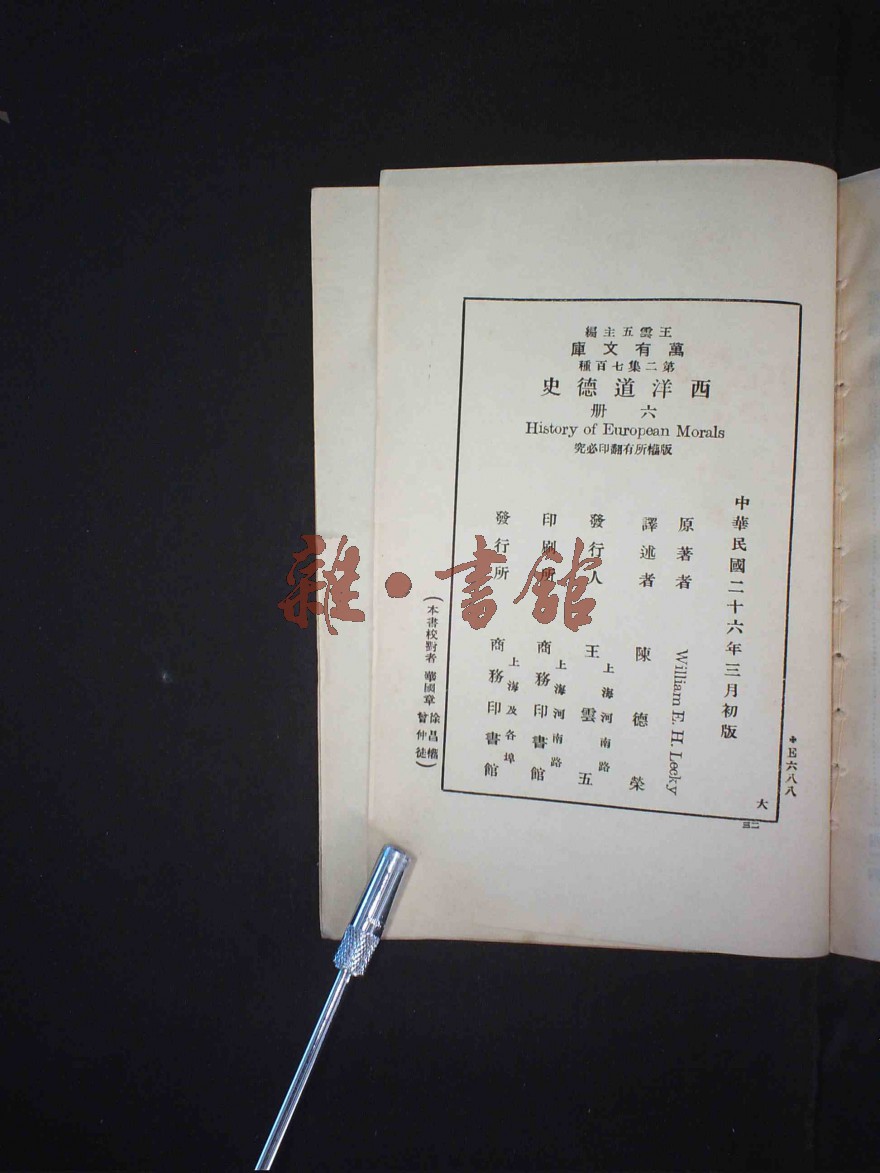 王雲五主編
萬有文庫
第二集七百種
西洋道德史
六册
History of European Morals
版權所有翻印必究
中華民國二十六年三月初版
原著者 William E. H. Lecky
譯述者 陳德榮
發行人 王雲五
上海河南路
印刷所 商務印書館
上海河南路
發行所 商務印書館
上海及各埠
(本書校對者 華國章 徐昌權 曾仲徒)
大
二三
E六八八
雜·書館